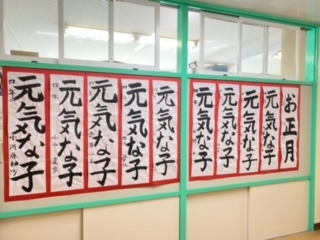 お正月
元気な子
元気な子
元気な子
元気な子
元気な子
元気な子
元気な子
元気な子
元気な子